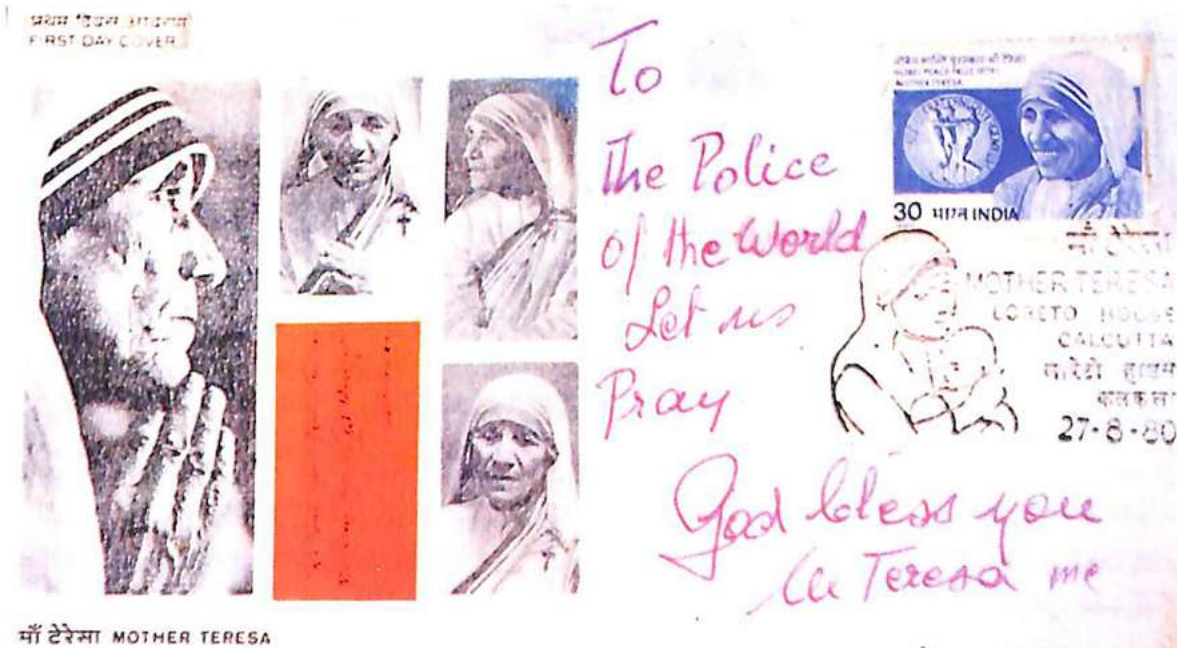 प्रथम दिवस आवरण
FIRST DAY COVER
To
The Police
of the World
Let us
Pray
God bless you
M Teresa mc
NOBEL PEACE PRIZE (1979)
MOTHER TERESA
30 भारत INDIA
माँ टेरेसा
MOTHER TERESA
LORETO HOUSE
CALCUTTA
लोरेटो हाउस
कलकत्ता
27-8-80
माँ टेरेसा MOTHER TERESA